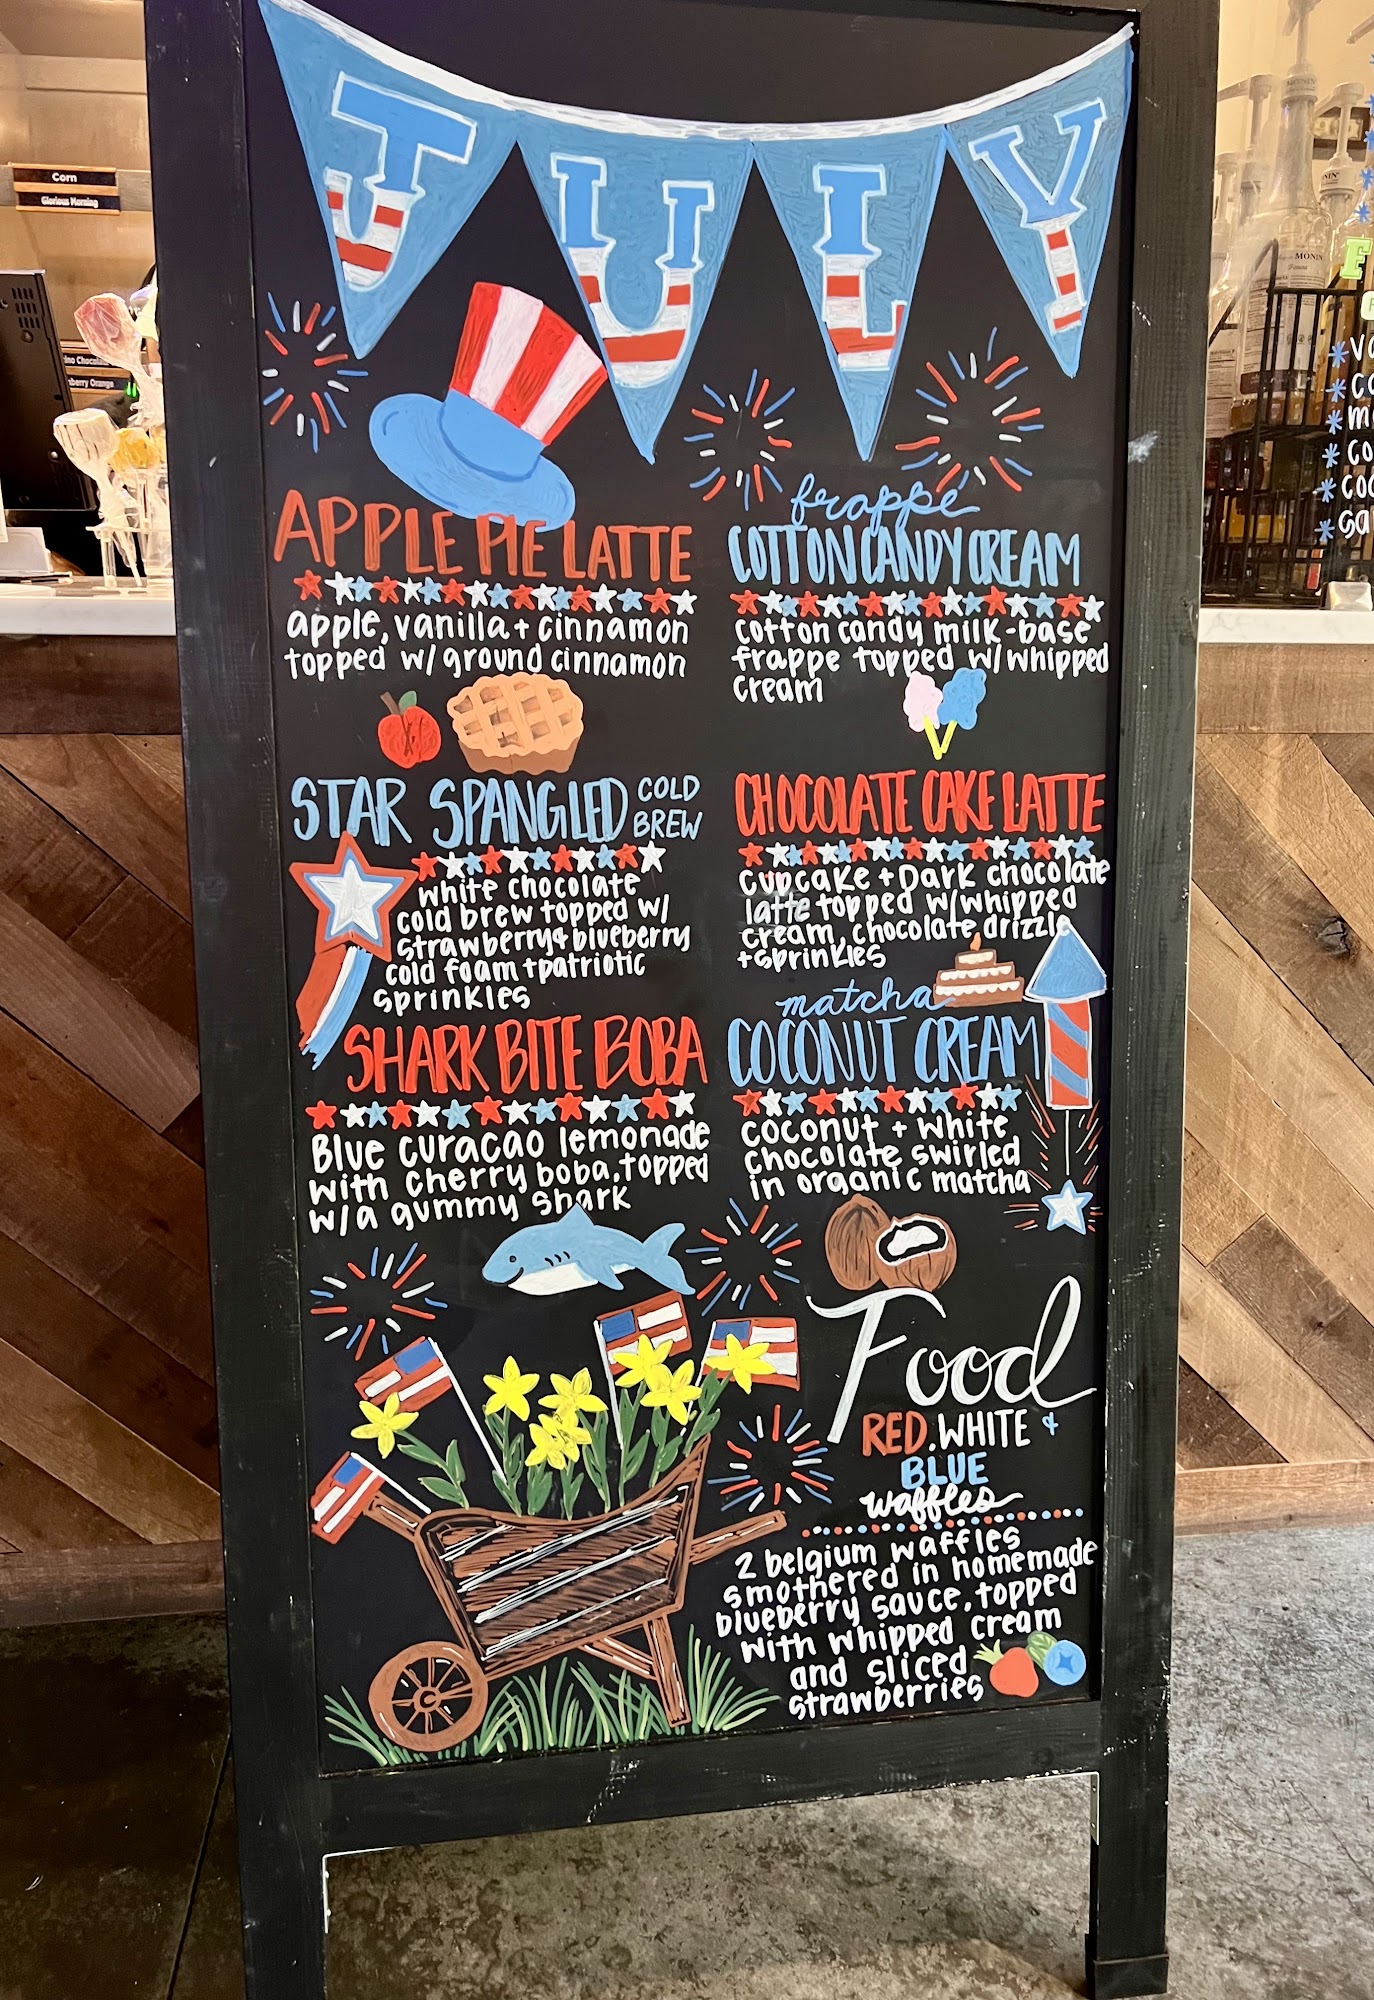 JULY
APPLE PIE LATTE
apple, vanilla + cinnamon
topped w/ ground cinnamon
STAR SPANGLED COLD
BREW
white chocolate
cold brew topped w/
strawberry + blueberry
cold foam + patriotic
sprinkles
SHARK BITE BOBA
Blue curacao lemonade
with cherry boba, topped
w/a gummy shark
frappé
COTTON CANDY CREAM
cotton candy milk-base
frappe topped w/ whipped
cream
CHOCOLATE CAKE LATTE
cupcake + Dark chocolate
latte topped w/ whipped
cream, chocolate drizzle
+ sprinkles
matcha
COCONUT CREAM
coconut + white
chocolate swirled
in organic matcha
Food
RED, WHITE +
BLUE
waffles
2 belgium waffles
smothered in homemade
blueberry sauce, topped
with whipped cream
and sliced
strawberries
C
Corn
Glorious Morning
MONIN